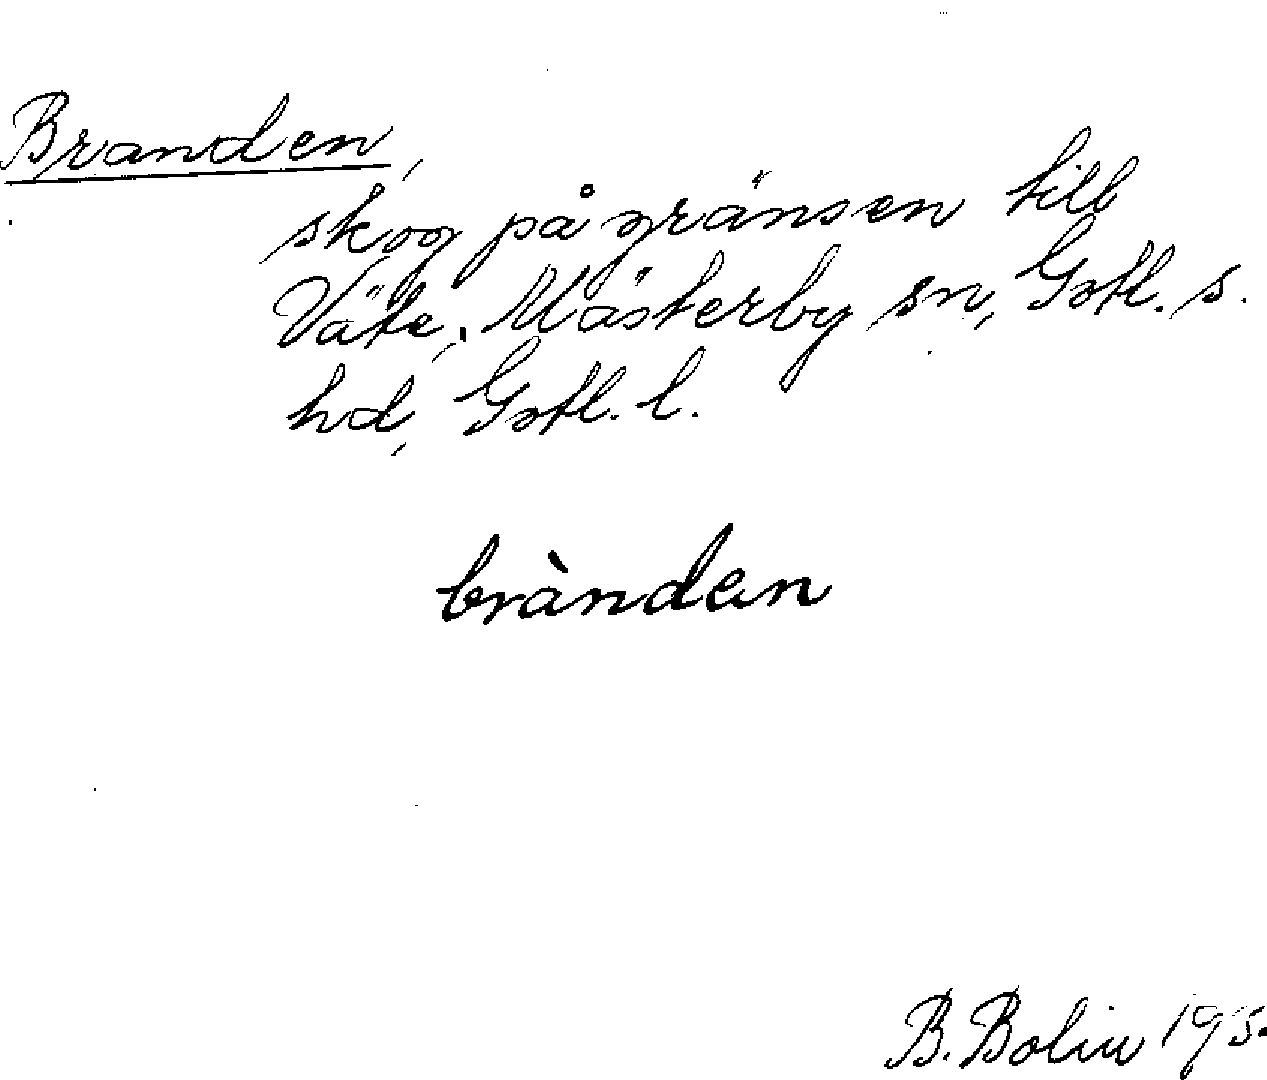 Branden,
skog på gränsen till
Väte, Mästerby sn, Gotl. s.
hd, Gotl. l.
bràndan
B. Bolin 195.